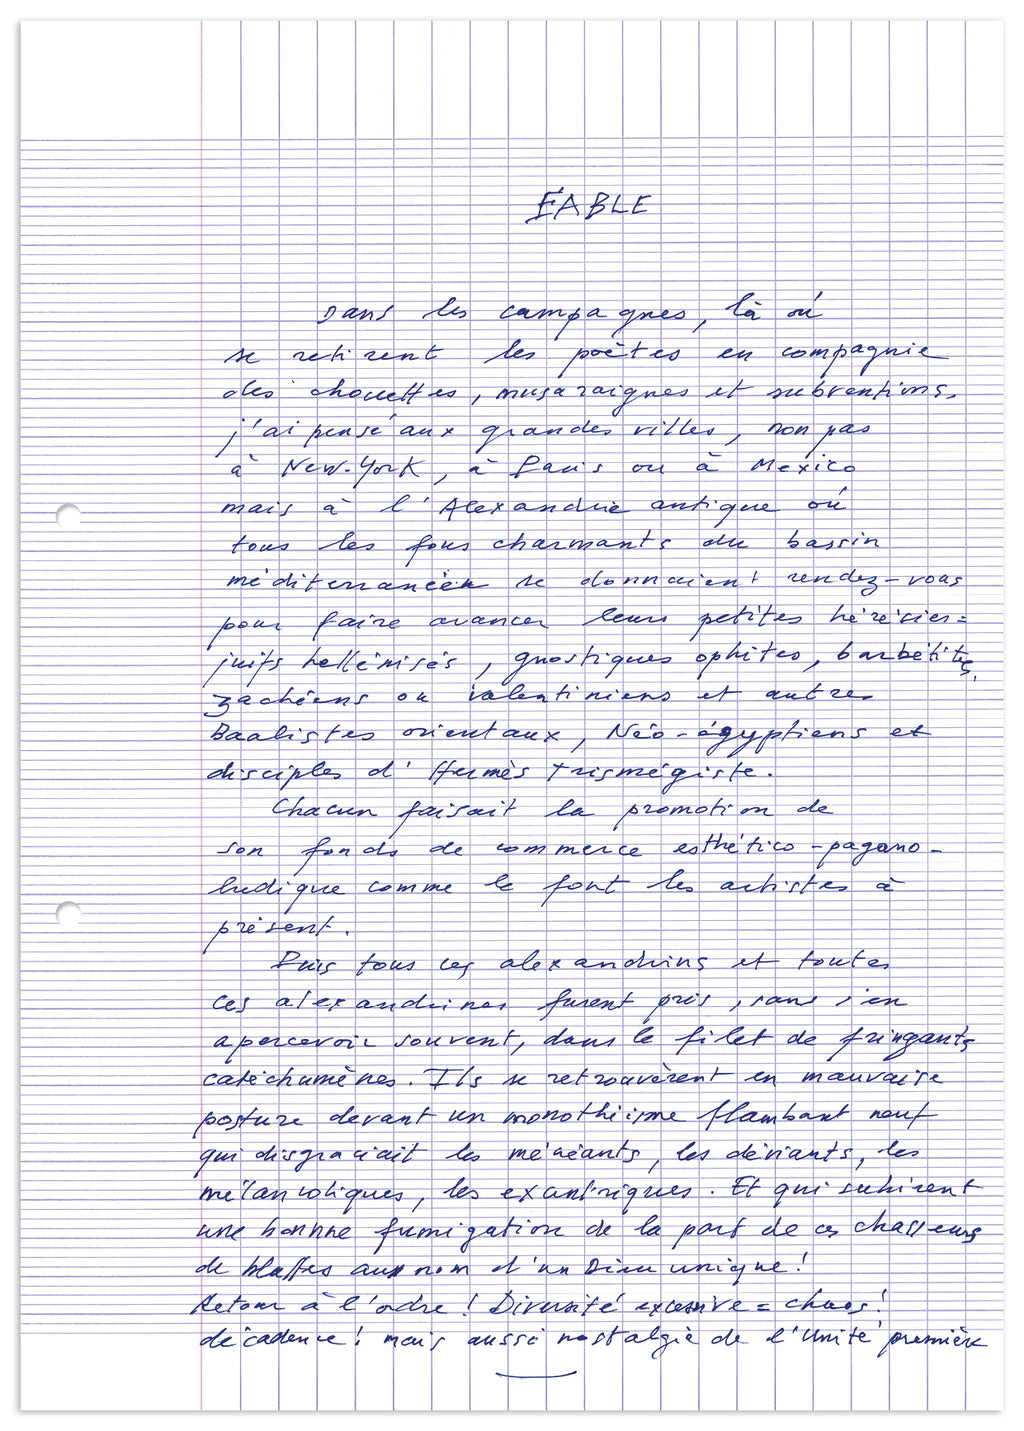 FABLE
Dans les campagnes, là où
se retirent les poètes en compagnie
des chouettes, musaraignes et subventions,
j'ai pensé aux grandes villes, non pas
à New-York, à Paris ou à Mexico
mais à l'Alexandrie antique où
tous les fous charmants du bassin
méditerranéen se donnaient rendez-vous
pour faire avancer leurs petites hérésies :
juifs hellénisés, gnostiques ophites, barbélites,
zachéens ou valentiniens et autres
Baalistes orientaux, Néo-égyptiens et
disciples d'Hermès trismégiste.
Chacun faisait la promotion de
son fonds de commerce esthético-pagano-
ludique comme le font les artistes à
présent.
Puis tous ces alexandrins et toutes
ces alexandrines furent pris, sans s'en
apercevoir souvent, dans le filet de fringants
catéchumènes. Ils se retrouvèrent en mauvaise
posture devant un monothéisme flambant neuf
qui disgraciait les mécréants, les déviants, les
mélancoliques, les excentriques. Et qui subirent
une bonne fumigation de la part de ces chasseurs
de blattes au nom d'un Dieu unique !
Retour à l'ordre ! Diversité excessive = chaos !
décadence ! mais aussi nostalgie de l'Unité première